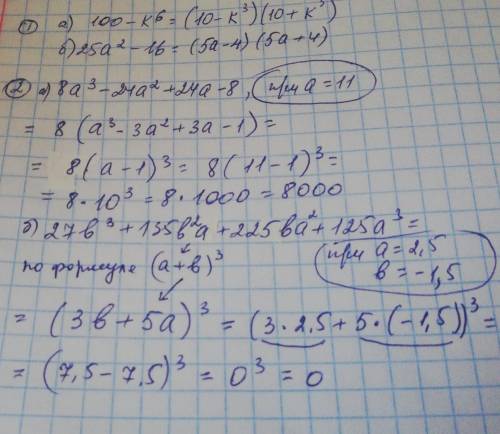 ① а) 100 - к⁶ = (10 - к³)(10 + к³)
б) 25а² - 16 = (5а - 4)(5а + 4)
② а) 8а³ - 24а² + 24а - 8, при а = 11
= 8 (а³ - 3а² + 3а - 1) =
= 8 (а - 1)³ = 8 (11 - 1)³ =
= 8 · 10³ = 8 · 1000 = 8000
б) 27в³ + 135в²а + 225ва² + 125а³ =
при а = 2,5
в = -1,5
по формуле (а + в)³
= (3в + 5а)³ = (3 · 2,5 + 5 · (-1,5))³ =
= (7,5 - 7,5)³ = 0³ = 0